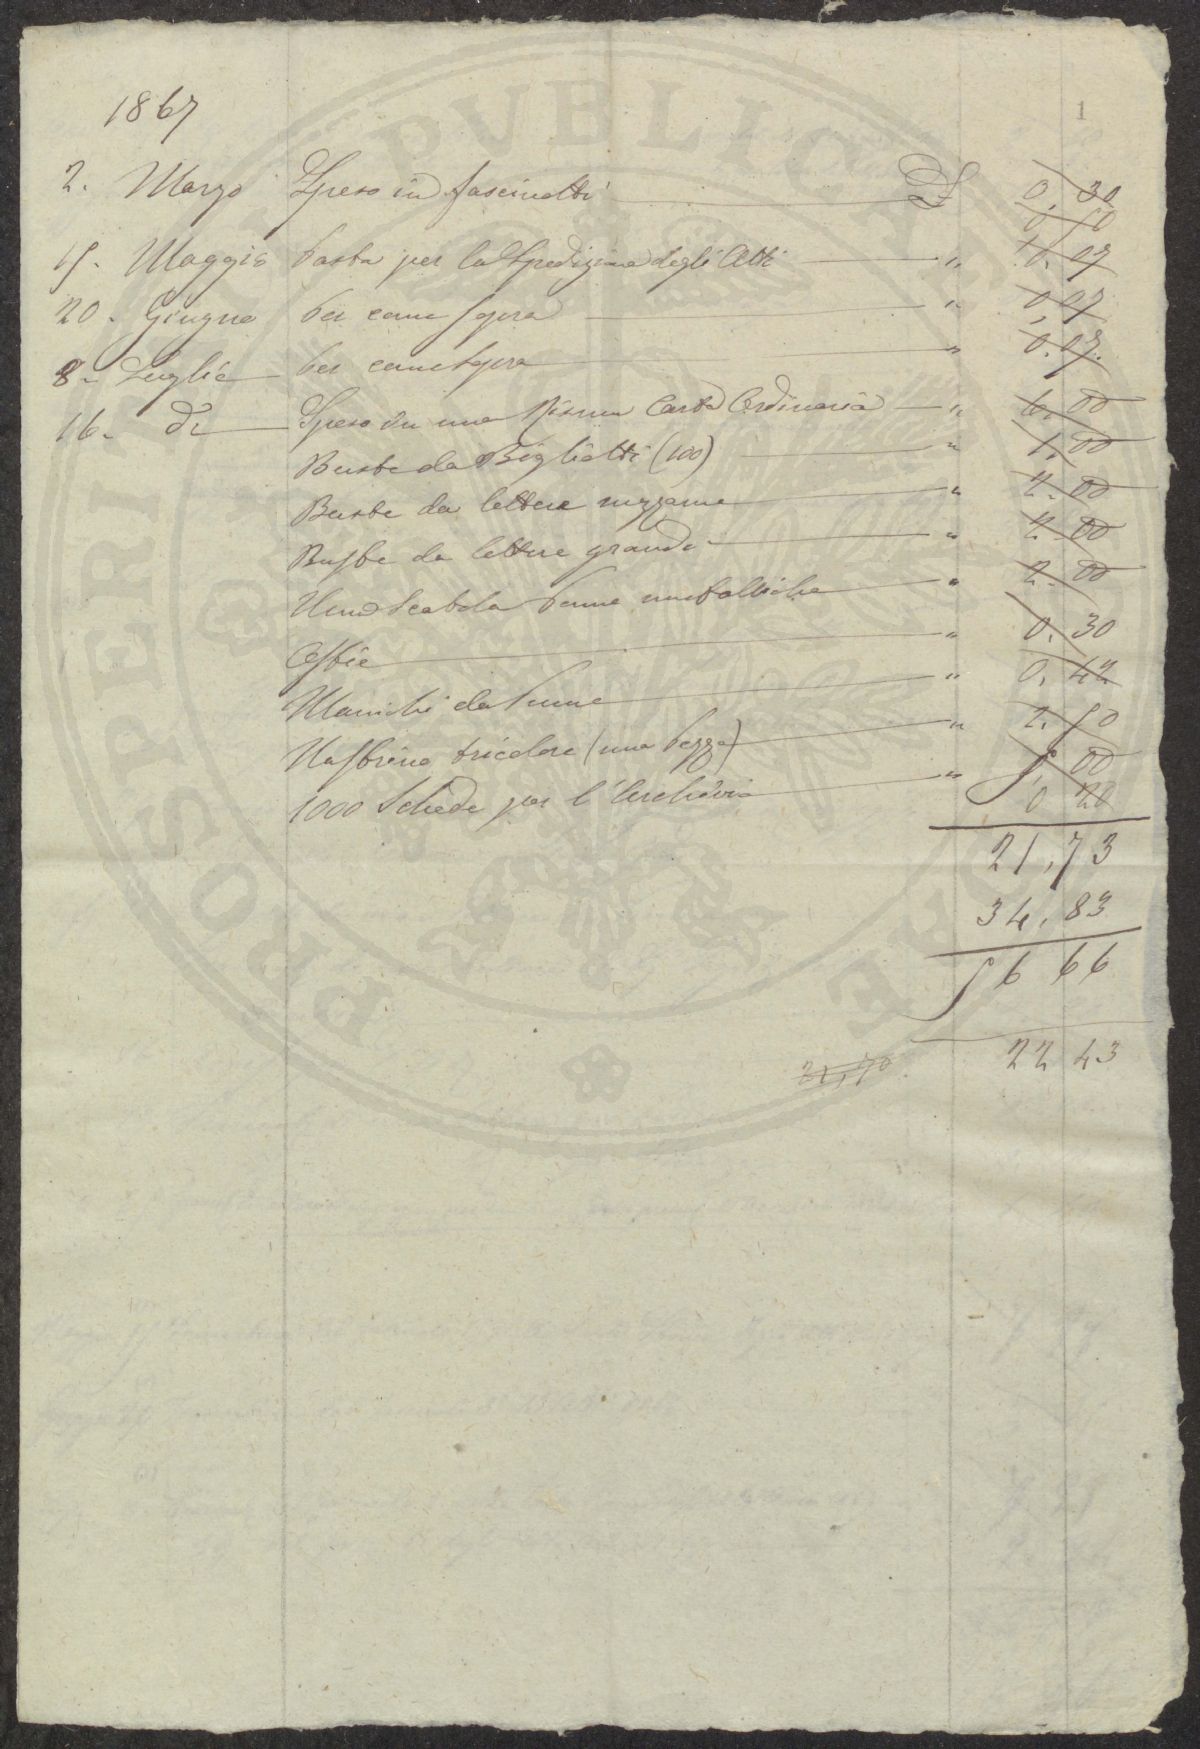 1867
1
2. Marzo Speso in fascinotti £ 0, 30
0 50
15. Maggio Posta per la Spedizione degli Atti " 0. 07
20. Giugno Per come sopra " 0, 07
8. Luglio Per come sopra " 0. 07.
16. Di Speso in una Risma Carta Ordinaria " 6. 00
Buste da Biglietti (100) " 1. 00
Buste da lettere mezzane " 2. 00
Buste da lettere grandi " 2. 00
Una Scatola Penne metalliche " 2. 00
Ostie " 0. 30
Manichi da Penne " 0. 42
Nastrino tricolore (una Pezza) " 2. 50
1000 Schede per l'Archivio " 5, 00
0 20
21,73
34,83
56 66
22 43
21,70